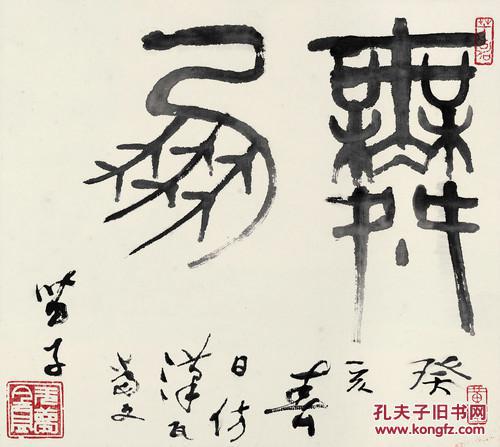 舞鳳
癸
亥
春
日仿
漢瓦
當文
苗子
黄
孔夫子旧书网
www.kongfz.com